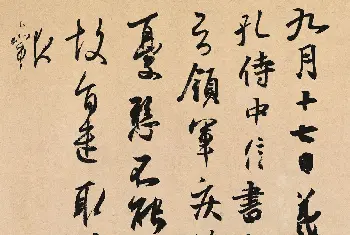 九月十七日羲
孔侍中信書
知領軍疾
憂懸不能
故旨遣取
報